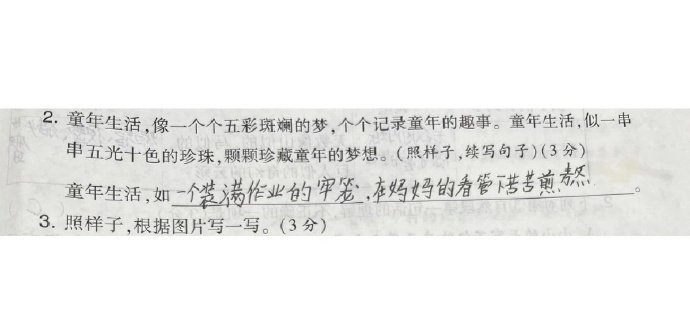 2. 童年生活,像一个个五彩斑斓的梦,个个记录童年的趣事。童年生活,似一串
串五光十色的珍珠,颗颗珍藏童年的梦想。(照样子,续写句子)(3分)
童年生活,如一个装满作业的牢笼,在妈妈的看管下苦苦煎熬。
3. 照样子,根据图片写一写。(3分)